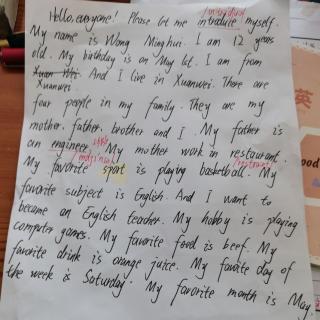 /intrə'djuːs/
Hello, everyone! Please let me introduce myself.
My name is Wong Minghui. I am 12 years
old. My birthday is on May 1st. I am from
Xuan Wei. And I live in Xuanwei. There are
Xuanwei.
four people in my family. They are my
mother, father, brother and I. My father is
an engineer. My mother work in restaurant.
My favorite sport is playing basketball. My
favorite subject is English. And I want to
became an English teacher. My hobby is playing
computer games. My favorite food is beef. My
favorite drink is orange juice. My favorite day of
the week is Saturday. My favorite month is May.
英
ood